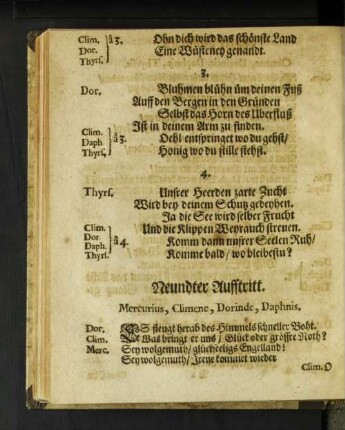 Clim. } à 3. Ohn dich wird das schönste Land
Dor. Eine Wüsteney genandt.
Thyrs.
3.
Dor. Bluhmen blühn üm deinen Fuß
Auff den Bergen in den Gründen
Selbst das Horn des Uberfluß
Ist in deinem Arm zu finden.
Clim. } à 3. Oehl entspringet wo du gehst/
Daph.
Thyrs. Honig wo du stille stehst.
4.
Thyrs. Unsrer Heerden zarte Zucht
Wird bey deinem Schutz gedeyhen.
Ja die See wird selber Frucht
Clim. Und die Klippen Weyrauch streuen.
Dor. } à 4. Komm dann unsrer Seelen Ruh/
Daph.
Thyrs. Komme bald/ wo bleibestu?
Neundter Aufftritt.
Mercurius, Climene, Dorinde, Daphnis.
Dor. ES steugt herab des Himmels schneller Boht.
Clim. Was bringt er uns/ Glück oder grössre Noth?
Merc. Sey wolgemuth/ glückseeligs Engelland!
Sey wolgemuth/ Irene kommet wieder
Clim. O